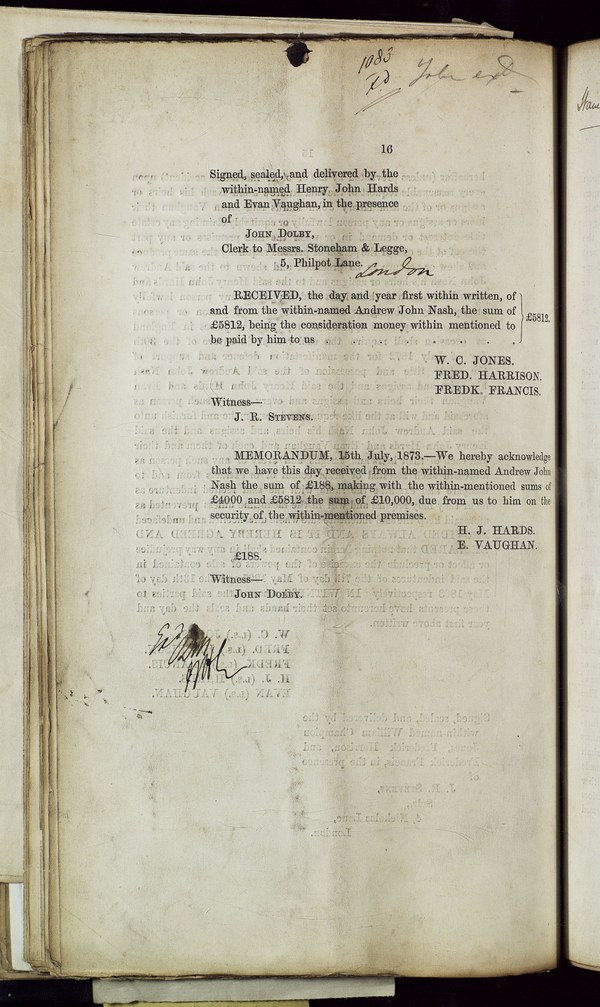 1083
16
Signed, sealed, and delivered by the
within-named Henry John Hards
and Evan Vaughan, in the presence
of
JOHN DOLBY,
Clerk to Messrs. Stoneham & Legge,
5, Philpot Lane.
London
RECEIVED, the day and year first within written, of
and from the within-named Andrew John Nash, the sum of
£5812, being the consideration money within mentioned to
be paid by him to us . . . . . .
£5812.
W. C. JONES.
FRED. HARRISON.
FREDK. FRANCIS.
Witness—
J. R. STEVENS.
MEMORANDUM, 15th July, 1873.—We hereby acknowledge
that we have this day received from the within-named Andrew John
Nash the sum of £188, making with the within-mentioned sums of
£4000 and £5812 the sum of £10,000, due from us to him on the
security of the within-mentioned premises.
H. J. HARDS.
E. VAUGHAN.
£188.
Witness—
JOHN DOLBY.